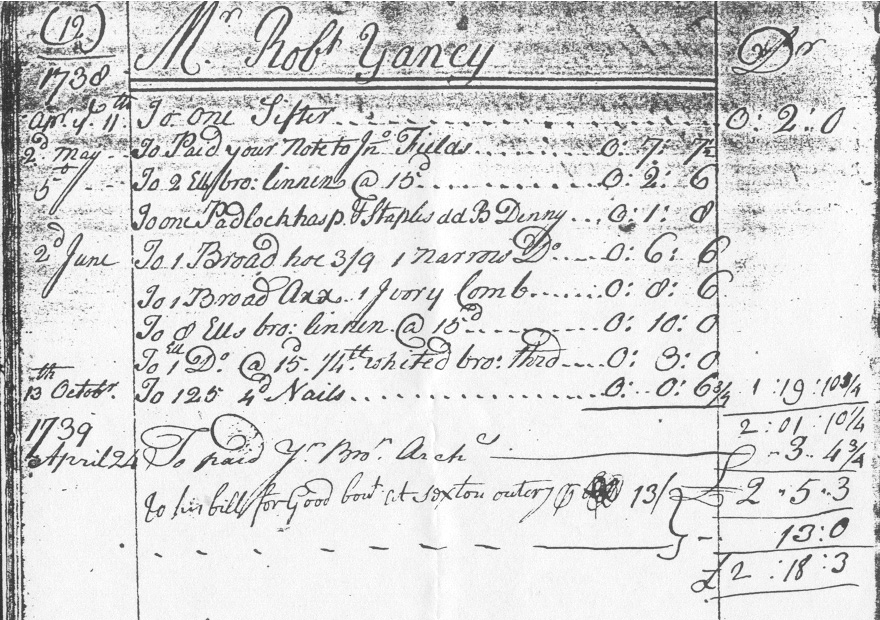 (12)
Mr. Robt Yancy Dr
1738
Apr. ye. 11th To one Sifter 0: 2: 0
2d May To Paid your Note to Jno. Fields 0: 7: 7½
5 To 2 Ells bro: linnen @ 15d 0: 2: 6
To one Padlock hasp & Staples dd B Denny 0: 1: 8
2d June To 1 Broad hoe 3/9 1 narrow Do 0: 6: 6
To 1 Broad Axx. 1 Ivory Comb 0: 8: 6
To 8 Ells bro: linnen @ 15d 0: 10: 0
To 1 Ell Do. @ 15d. ¼ tt. whited bro: thrd 0: 3: 0
13th Octobr. To 125 4d Nails 0: 0: 6¾ 1: 19: 10¾
2: 01: 10¼
1739
April 24 To paid Yr Bror. Arche 3 4¾
To his bill for Good bout at Sexton 13/ £2 5 3
13: 0
£2: 18: 3